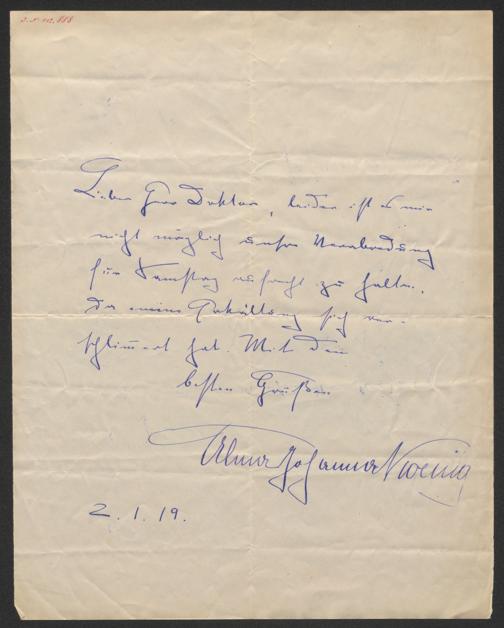 Lieber Herr Doktor, leider ist es mir
nicht möglich unsre Verabredung
für Samstag aufrecht zu halten,
da meine Erkältung sich ver-
schlimmert hat. Mit den
besten Grüßen
Alma Johanna Koenig
2. 1. 19.